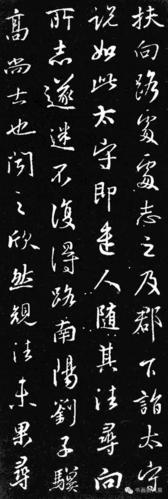 扶向路處處志之及郡下詣太守
說如此太守即遣人隨其往尋向
所志遂迷不復得路南陽劉子驥
高尚士也聞之欣然規往未果尋